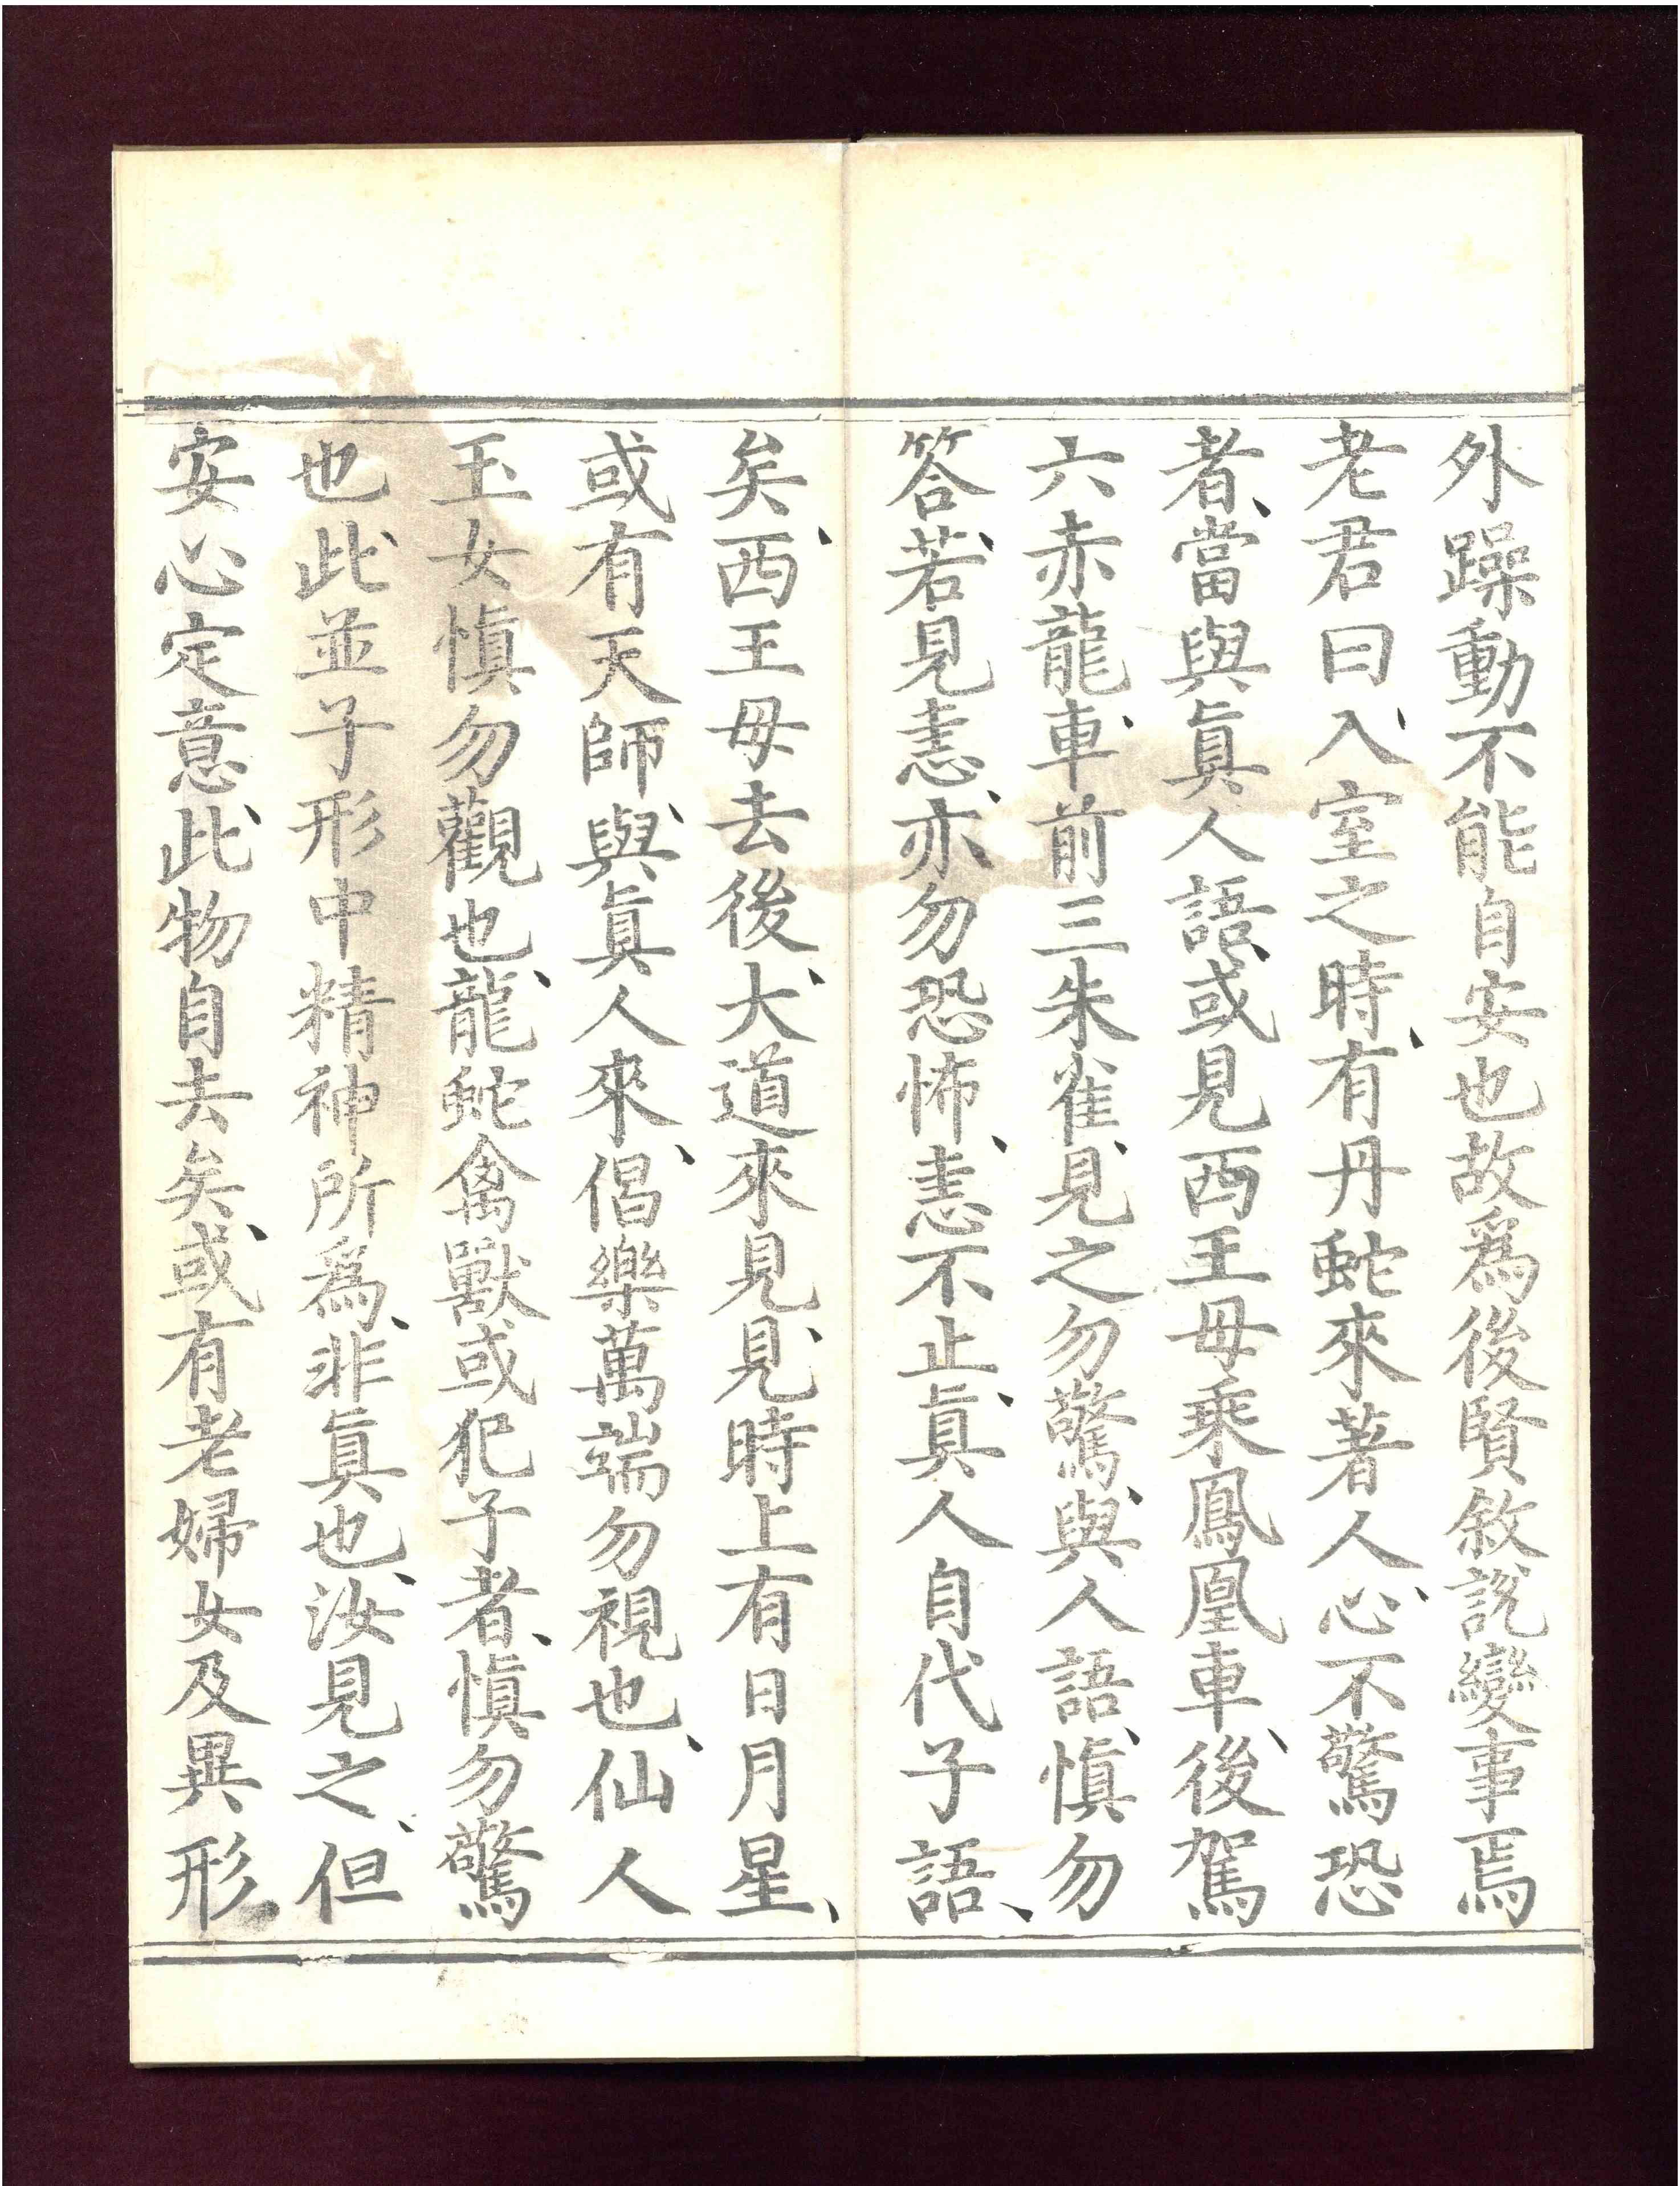 外躁動不能自安也故爲後賢敘說變事焉
老君曰、入室之時、有丹蛇來著人心、不驚恐
者、當與眞人語、或見西王母乘鳳凰車、後駕
六赤龍車、前三朱雀、見之勿驚、與人語、慎勿
答、若見恚、亦勿恐怖、恚不止、眞人自代子語、
矣、西王母去後、大道來見、見時上有日月星、
或有天師、與眞人來、倡樂萬端勿視也、仙人
玉女慎勿觀也、龍蛇禽獸或犯子者、慎勿驚
也、此並子形中精神所爲、非眞也、汝見之、但
安心定意、此物自去矣、或有老婦女及異形、